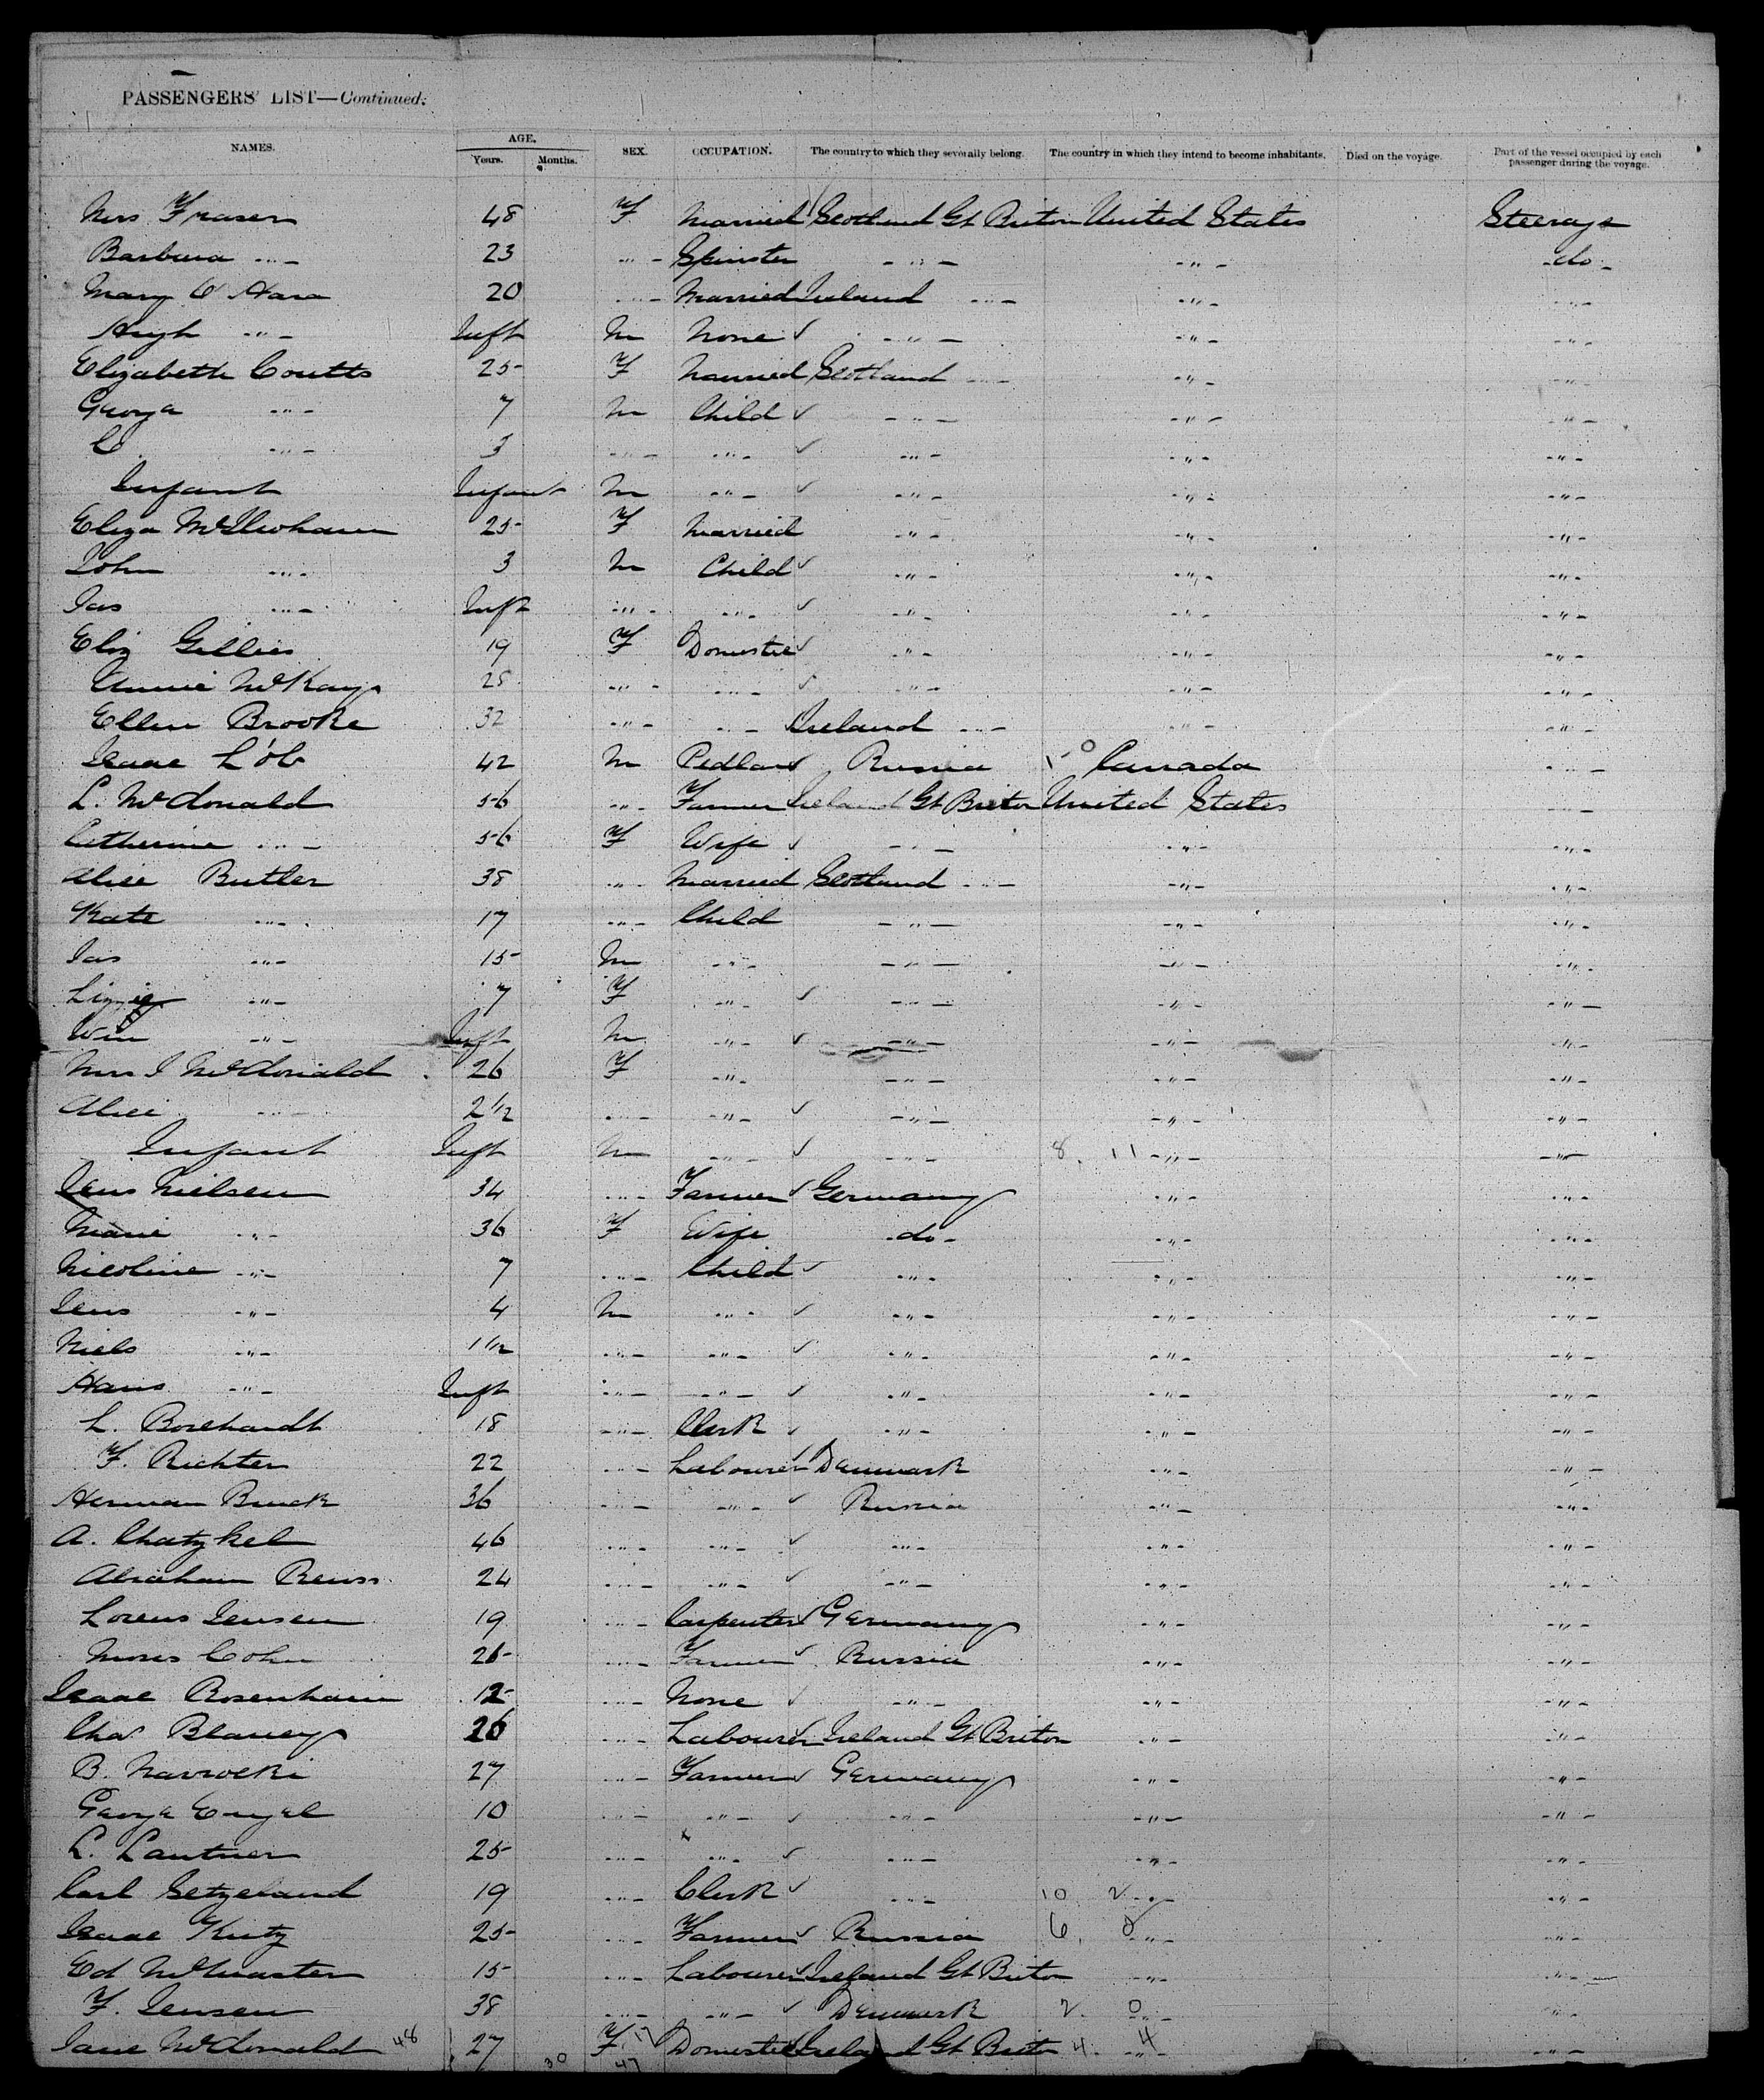 PASSENGERS' LIST—Continued.
NAMES. AGE. SEX. OCCUPATION. The country to which they severally belong. The country in which they intend to become inhabitants. Died on the voyage. Part of the vessel occupied by each passenger during the voyage.
Years. Months.
Mrs Fraser 48 F Married Scotland Gt Briton United States Steerage
Barbara -"- 23 -"- Spinster -"- -"- -do-
Mary O'Hara 20 -"- Married Ireland -"- -"- -"-
Hugh -"- Inft M None ✓ -"- -"- -"-
Elizabeth Coutts 25 F Married Scotland -"- -"- -"-
George -"- 7 M Child ✓ -"- -"- -"-
C. -"- 3 -"- -"- ✓ -"- -"- -"-
Infant Infant M -"- ✓ -"- -"- -"-
Eliza 25 F Married -"- -"- -"-
John -"- 3 M Child ✓ -"- -"- -"-
Jas -"- Inft -"- -"- ✓ -"- -"- -"-
Eliz Gillies 19 F Domestic ✓ -"- -"- -"-
Annie McKay 28 -"- -"- ✓ -"- -"- -"-
Ellen Brooke 32 -"- -"- Ireland -"- -"- -"-
Isaac Löb 42 M Pedlar ✓ Russia 1 0 Canada -"-
L. McDonald 56 -"- Farmer Ireland Gt Briton United States -"-
Catherine -"- 56 F Wife ✓ -"- -"- -"-
Alice Butler 38 -"- Married Scotland -"- -"- -"-
Kate -"- 17 -"- Child -"- -"- -"-
Jas -"- 15 M -"- -"- -"- -"-
Lizzie -"- 7 F -"- ✓ -"- -"- -"-
Wm -"- Inft M -"- ✓ -"- -"- -"-
Mrs J McDonald 26 F -"- -"- -"- -"-
Alice -"- 2 1/2 -"- -"- ✓ -"- -"- -"-
Infant Inft M -"- ✓ -"- 8. 11 -"- -"-
Jens Nielsen 34 -"- Farmer ✓ Germany -"- -"-
Marie -"- 36 F Wife -do- -"- -"-
Nicoline -"- 7 -"- Child ✓ -"- -"- -"-
Jens -"- 4 M -"- ✓ -"- -"- -"-
Niels -"- 1 1/2 -"- -"- ✓ -"- -"- -"-
Hans -"- Inft -"- -"- ✓ -"- -"- -"-
L. Borchardt 18 -"- Clerk ✓ -"- -"- -"-
F. Richter 22 -"- Labourer ✓ Denmark -"- -"-
Herman Bruck 36 -"- -"- ✓ Russia -"- -"-
A. Chatzkel 46 -"- -"- ✓ -"- -"- -"-
Abraham Reuss 24 -"- -"- ✓ -"- -"- -"-
Lorens Jensen 19 -"- Carpenter ✓ Germany -"- -"-
Moses Cohn 25 -"- Farmer ✓ Russia -"- -"-
Isaac Rosenhain 12 -"- None ✓ -"- -"- -"-
Chas Blaney 26 -"- Labourer ✓ Ireland Gt Briton -"- -"-
B. Nawrocki 27 -"- Farmer ✓ Germany -"- -"-
George Engel 10 -"- -"- ✓ -"- -"- -"-
L. Lautner 25 -"- -"- ✓ -"- -"- -"-
Carl 19 -"- Clerk ✓ -"- 10 2 -"- -"-
Isaac 25 -"- Farmer ✓ Russia 6. 0 -"- -"-
Ed McMaster 15 -"- Labourer ✓ Ireland Gt Briton -"- -"-
F. Jensen 38 -"- -"- ✓ Denmark 2. 0 -"- -"-
Jane McDonald 48 27 30 F 17 47 Domestic ✓ Ireland Gt Briton 4. 4 -"- -"-